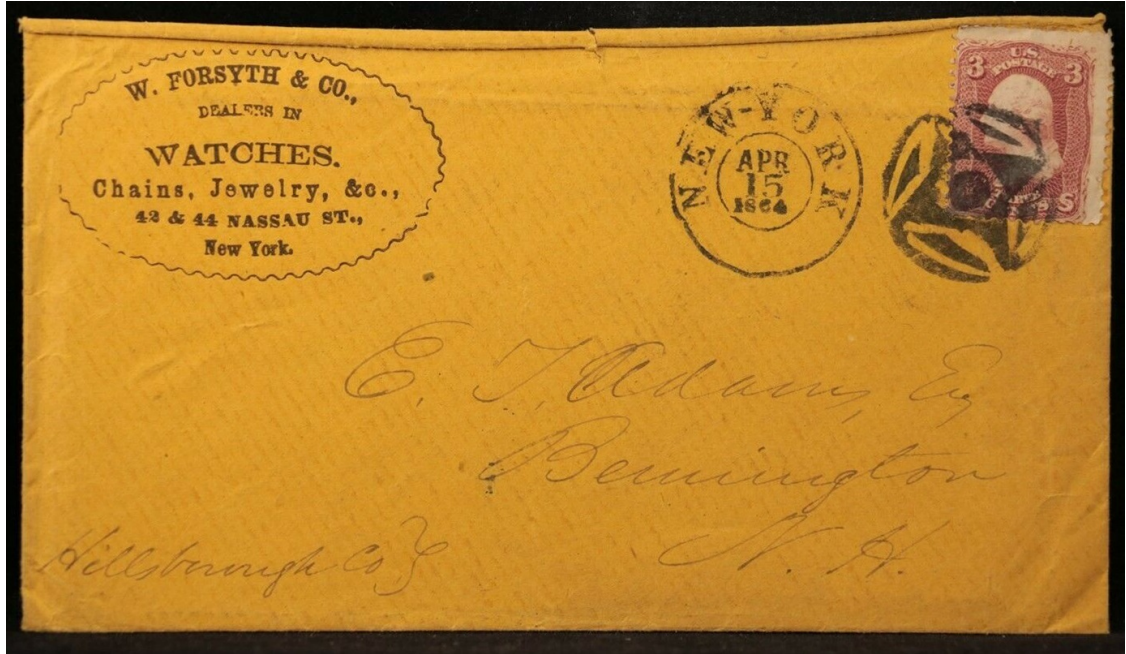 W. FORSYTH & CO.,
DEALERS IN
WATCHES.
Chains, Jewelry, &c.,
42 & 44 NASSAU ST.,
New York.
NEW-YORK
APR
15
1864
U.S.
POSTAGE
3 3
E. T. Adams, Esq
Bennington
N. H.
Hillsborough Co